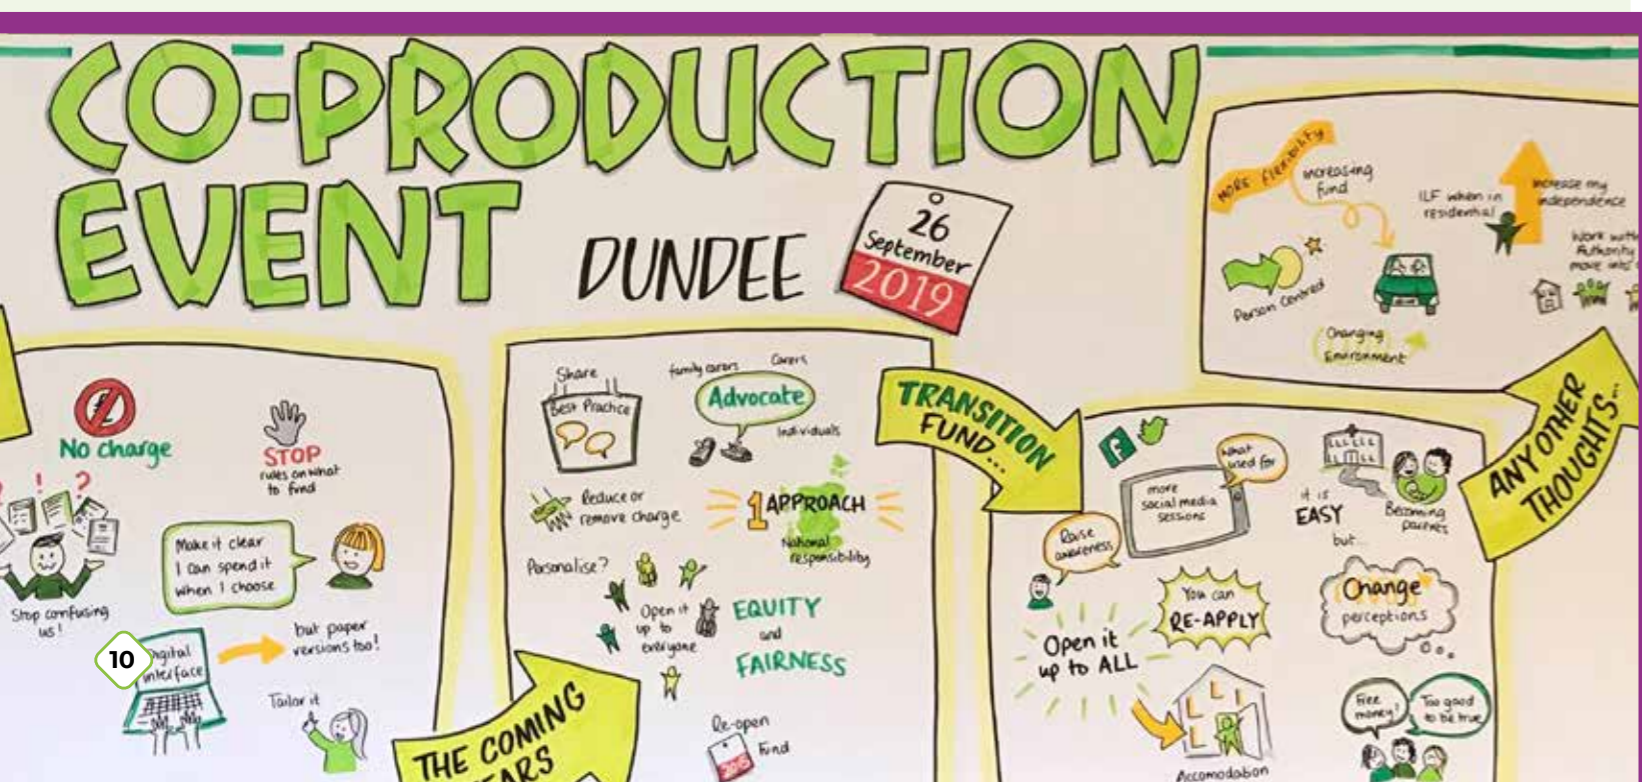 CO-PRODUCTION
EVENT
DUNDEE
26
September
2019
No charge
STOP
rules on what
to fund
? ! ?
Stop confusing
us!
Make it clear
I can spend it
when I choose
Digital
interface
but paper
versions too!
Tailor it
10
THE COMING
Share
Best Practice
family carers
Carers
Advocate
Individuals
Reduce or
remove charge
1 APPROACH
National
responsibility
Personalise?
Open it
up to
everyone
EQUITY
and
FAIRNESS
Re-open
2015
Fund
TRANSITION
FUND...
more
social media
sessions
What
used for
Raise
awareness
it is
EASY
but...
Becoming
parents
You can
RE-APPLY
Change
perceptions
Open it
up to ALL
Accomodation
Free
money!
Too good
to be true
ANY OTHER
THOUGHTS...
MORE FLEXIBILITY
increasing
fund
ILF when in
residential
increase my
independence
Work with
Authority
move into
Person Centred
Changing
Environment